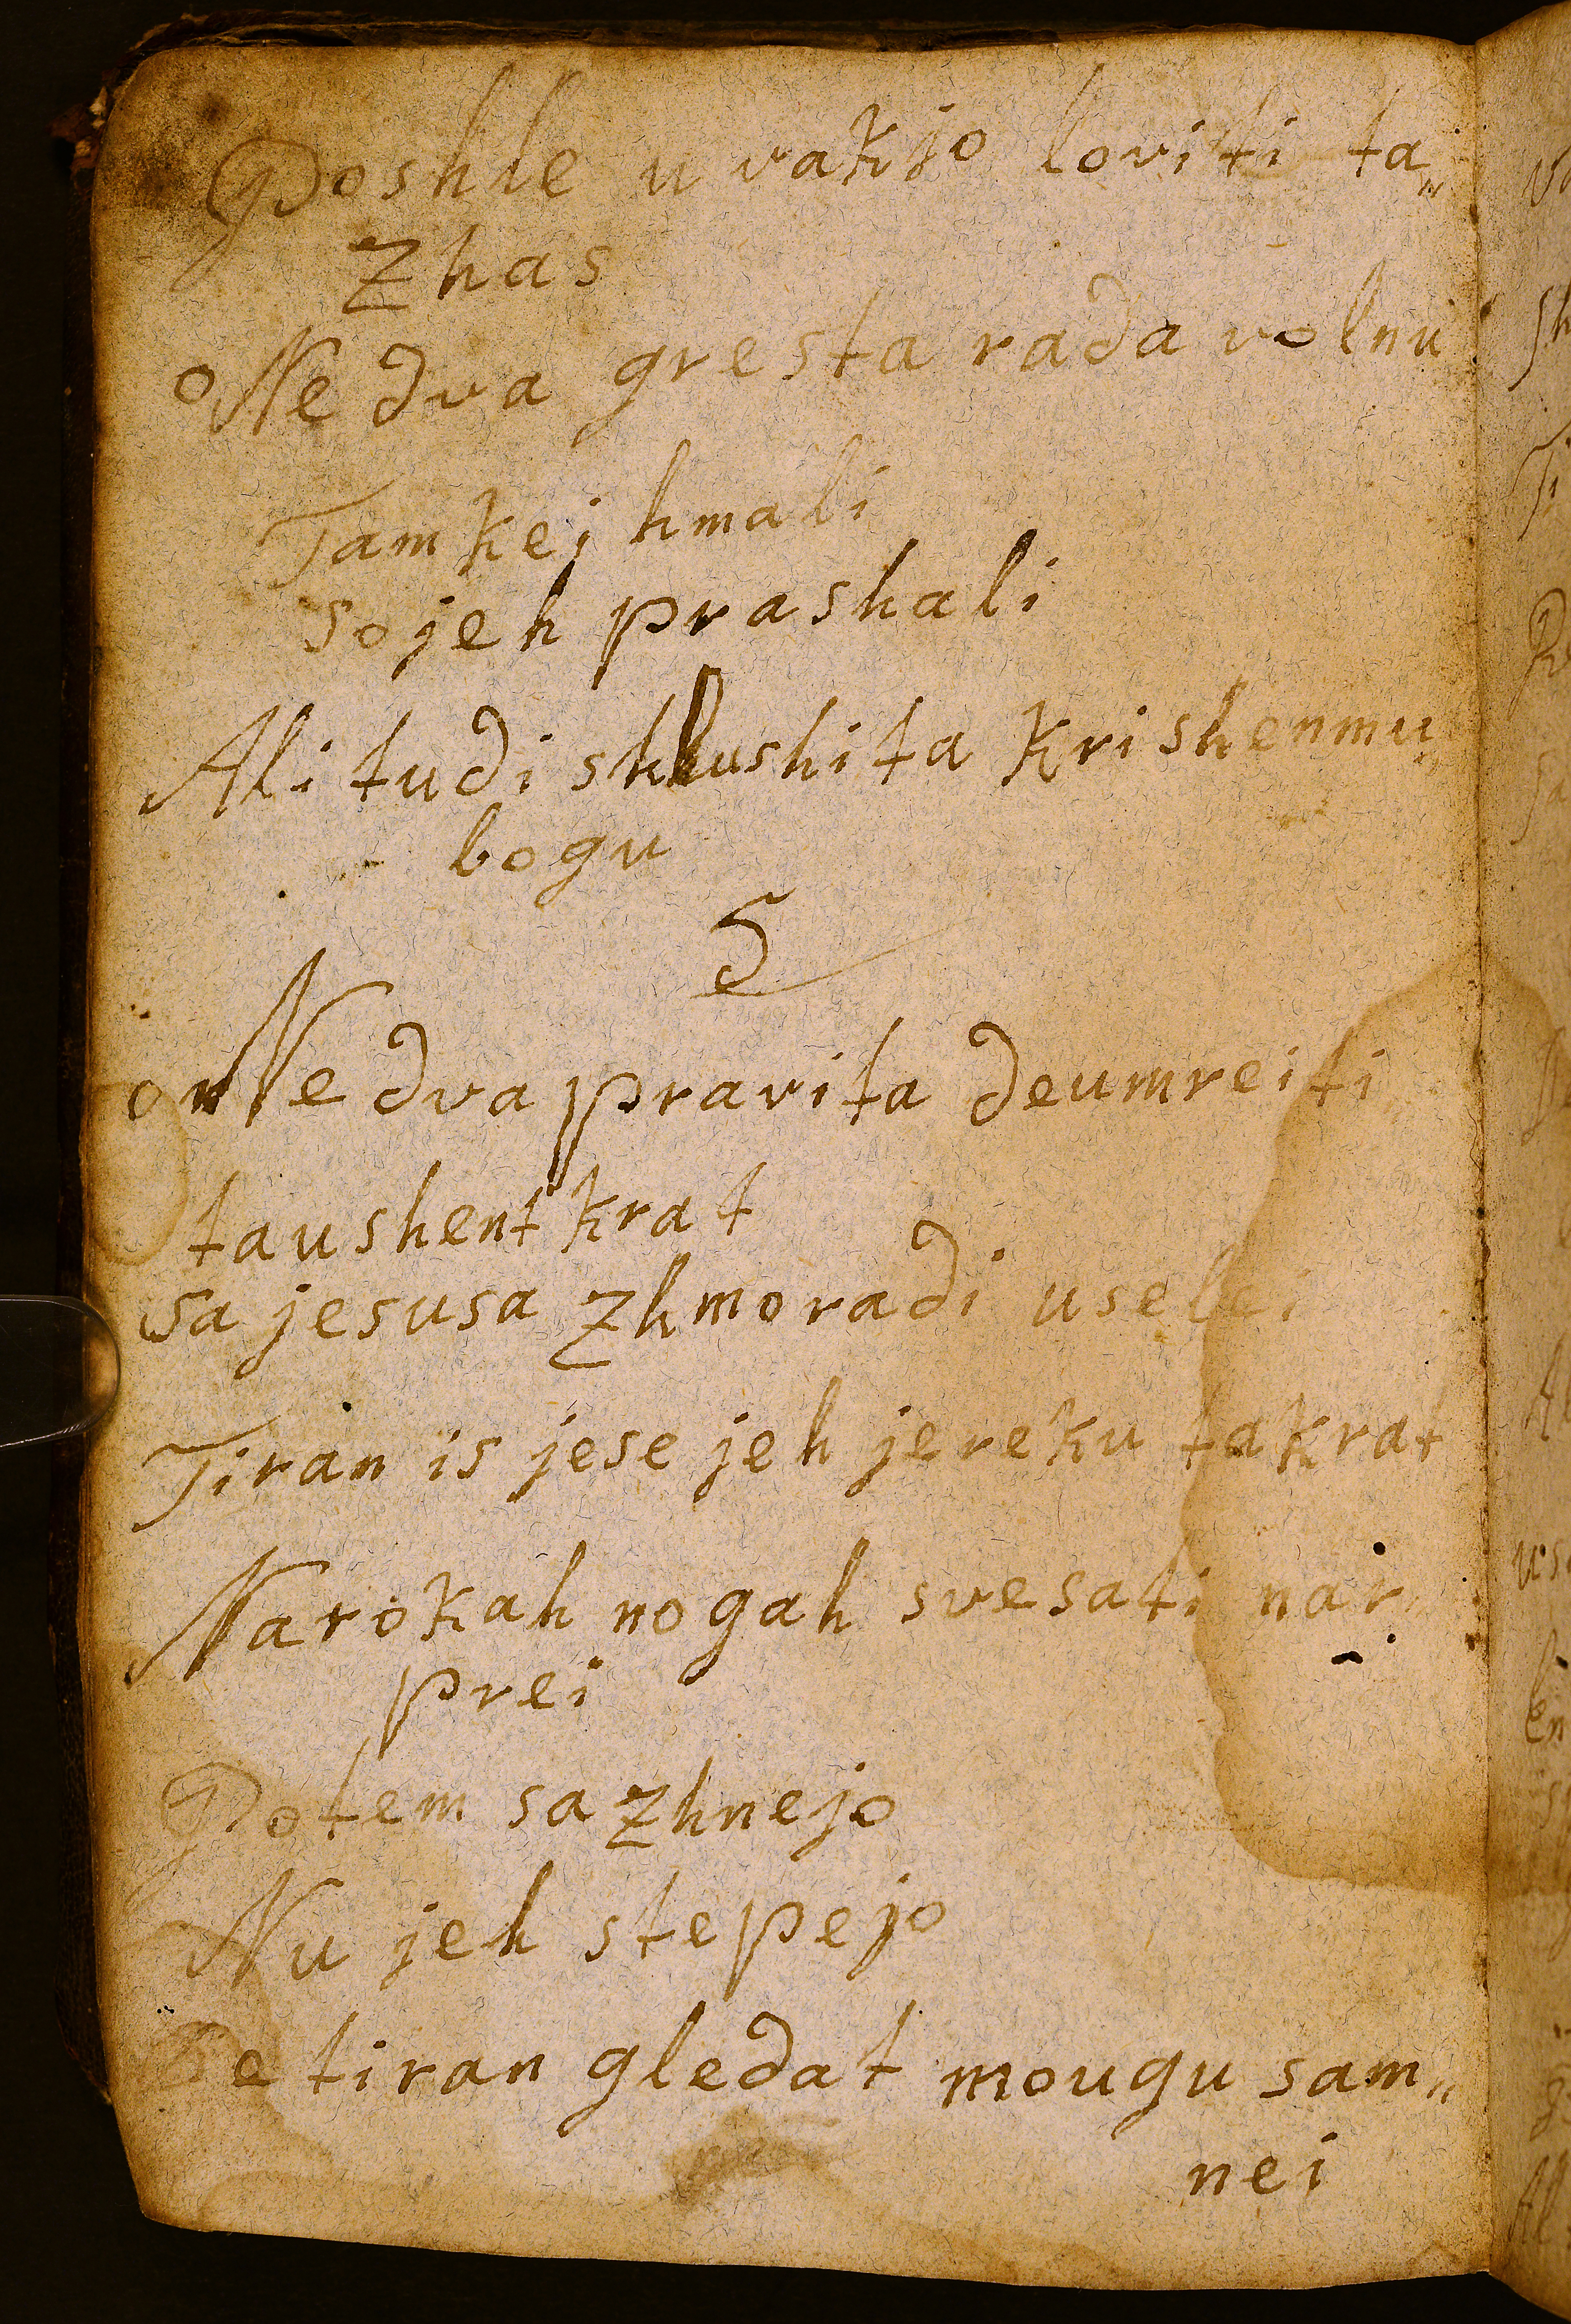 Poshle u vakjo loviti ta„
zhas
oNe dva gresta rada volnu
Tam kej hmali
so jeh prashali
Ali tudi shlushita krishenmu„
bogu
5
onNe dva pravita deumreiti
taushent krat
sa jesusa zhmoradi uselei
Tiran is jese jeh jereku takrat
Narokah nogah svesati nar„
prei
Potem sa zhnejo
Nu jeh stepejo
De tiran gledat mougu sam„
nei